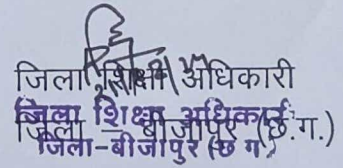 जिला शिक्षा अधिकारी
जिला शिक्षा अधिकारी
जिला – बीजापुर (छ.ग.)
जिला-बीजापुर (छ ग)